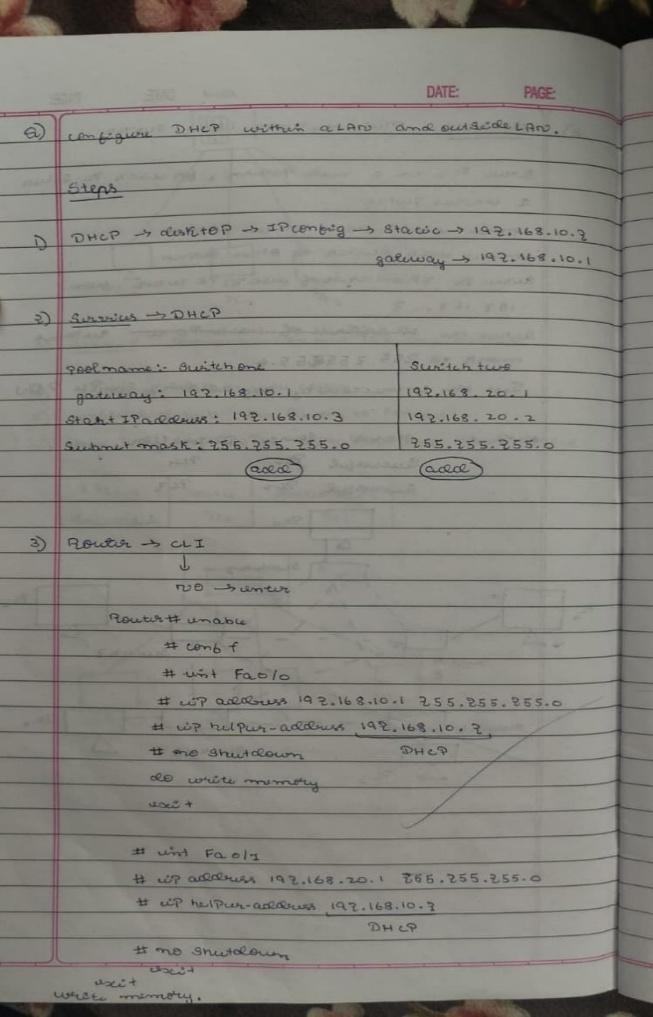 DATE: PAGE:
Q) configure DHCP within a LAN and outside LAN.
Steps
1) DHCP → desktop → IPconfig → static → 192.168.10.2
gateway → 192.168.10.1
2) Services → DHCP
pool name:- switch one | Switch two
gateway: 192.168.10.1 | 192.168.20.1
Start IP address: 192.168.10.3 | 192.168.20.2
Subnet mask: 255.255.255.0 | 255.255.255.0
add add
3) Router → CLI
↓
no → enter
Router# enable
# conf t
# int Fa0/0
# ip address 192.168.10.1 255.255.255.0
# ip helper-address 192.168.10.2,
# no shutdown DHCP
do write memory
exit
# int Fa0/1
# ip address 192.168.20.1 255.255.255.0
# ip helper-address 192.168.10.2
DHCP
# no shutdown
exit
exit
write memory.